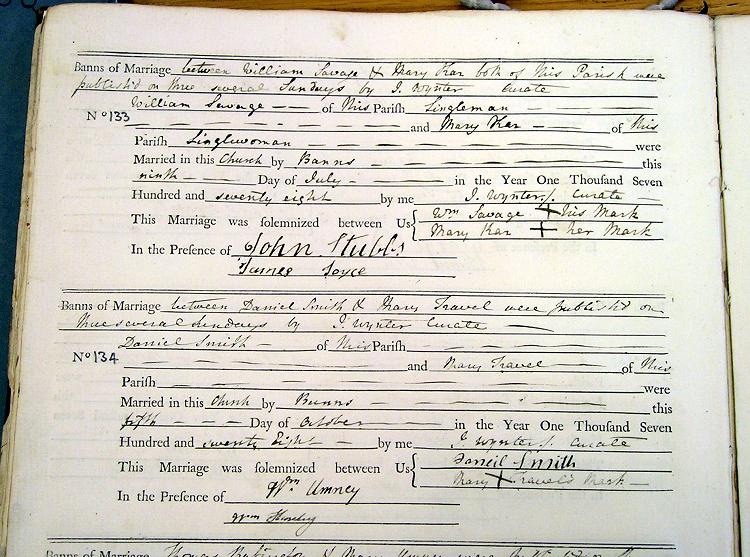 Banns of Marriage between William Savage & Mary Kar both of this Parish were
publish'd on three several Sundays by J. Wynter Curate
William Savage of this Parish Singleman
No 133 and Mary Kar of this
Parish Singlewoman were
Married in this Church by Banns this
ninth Day of July in the Year One Thousand Seven
Hundred and seventy eight by me J. Wynter Curate
This Marriage was solemnized between Us { Wm Savage + his Mark
Mary Kar + her Mark
In the Presence of John Stubbs
James Joyce
Banns of Marriage between Daniel Smith & Mary Travel were publish'd on
three several Sundays by J. Wynter Curate
Daniel Smith of this Parish
No 134 and Mary Travel of this
Parish were
Married in this Church by Banns this
fifth Day of October in the Year One Thousand Seven
Hundred and seventy Eight by me J Wynter Curate
This Marriage was solemnized between Us { Daneil Smith
Mary + Travel's Mark
In the Presence of Wm Umney
Wm
Banns of Marriage Thomas & Mary were